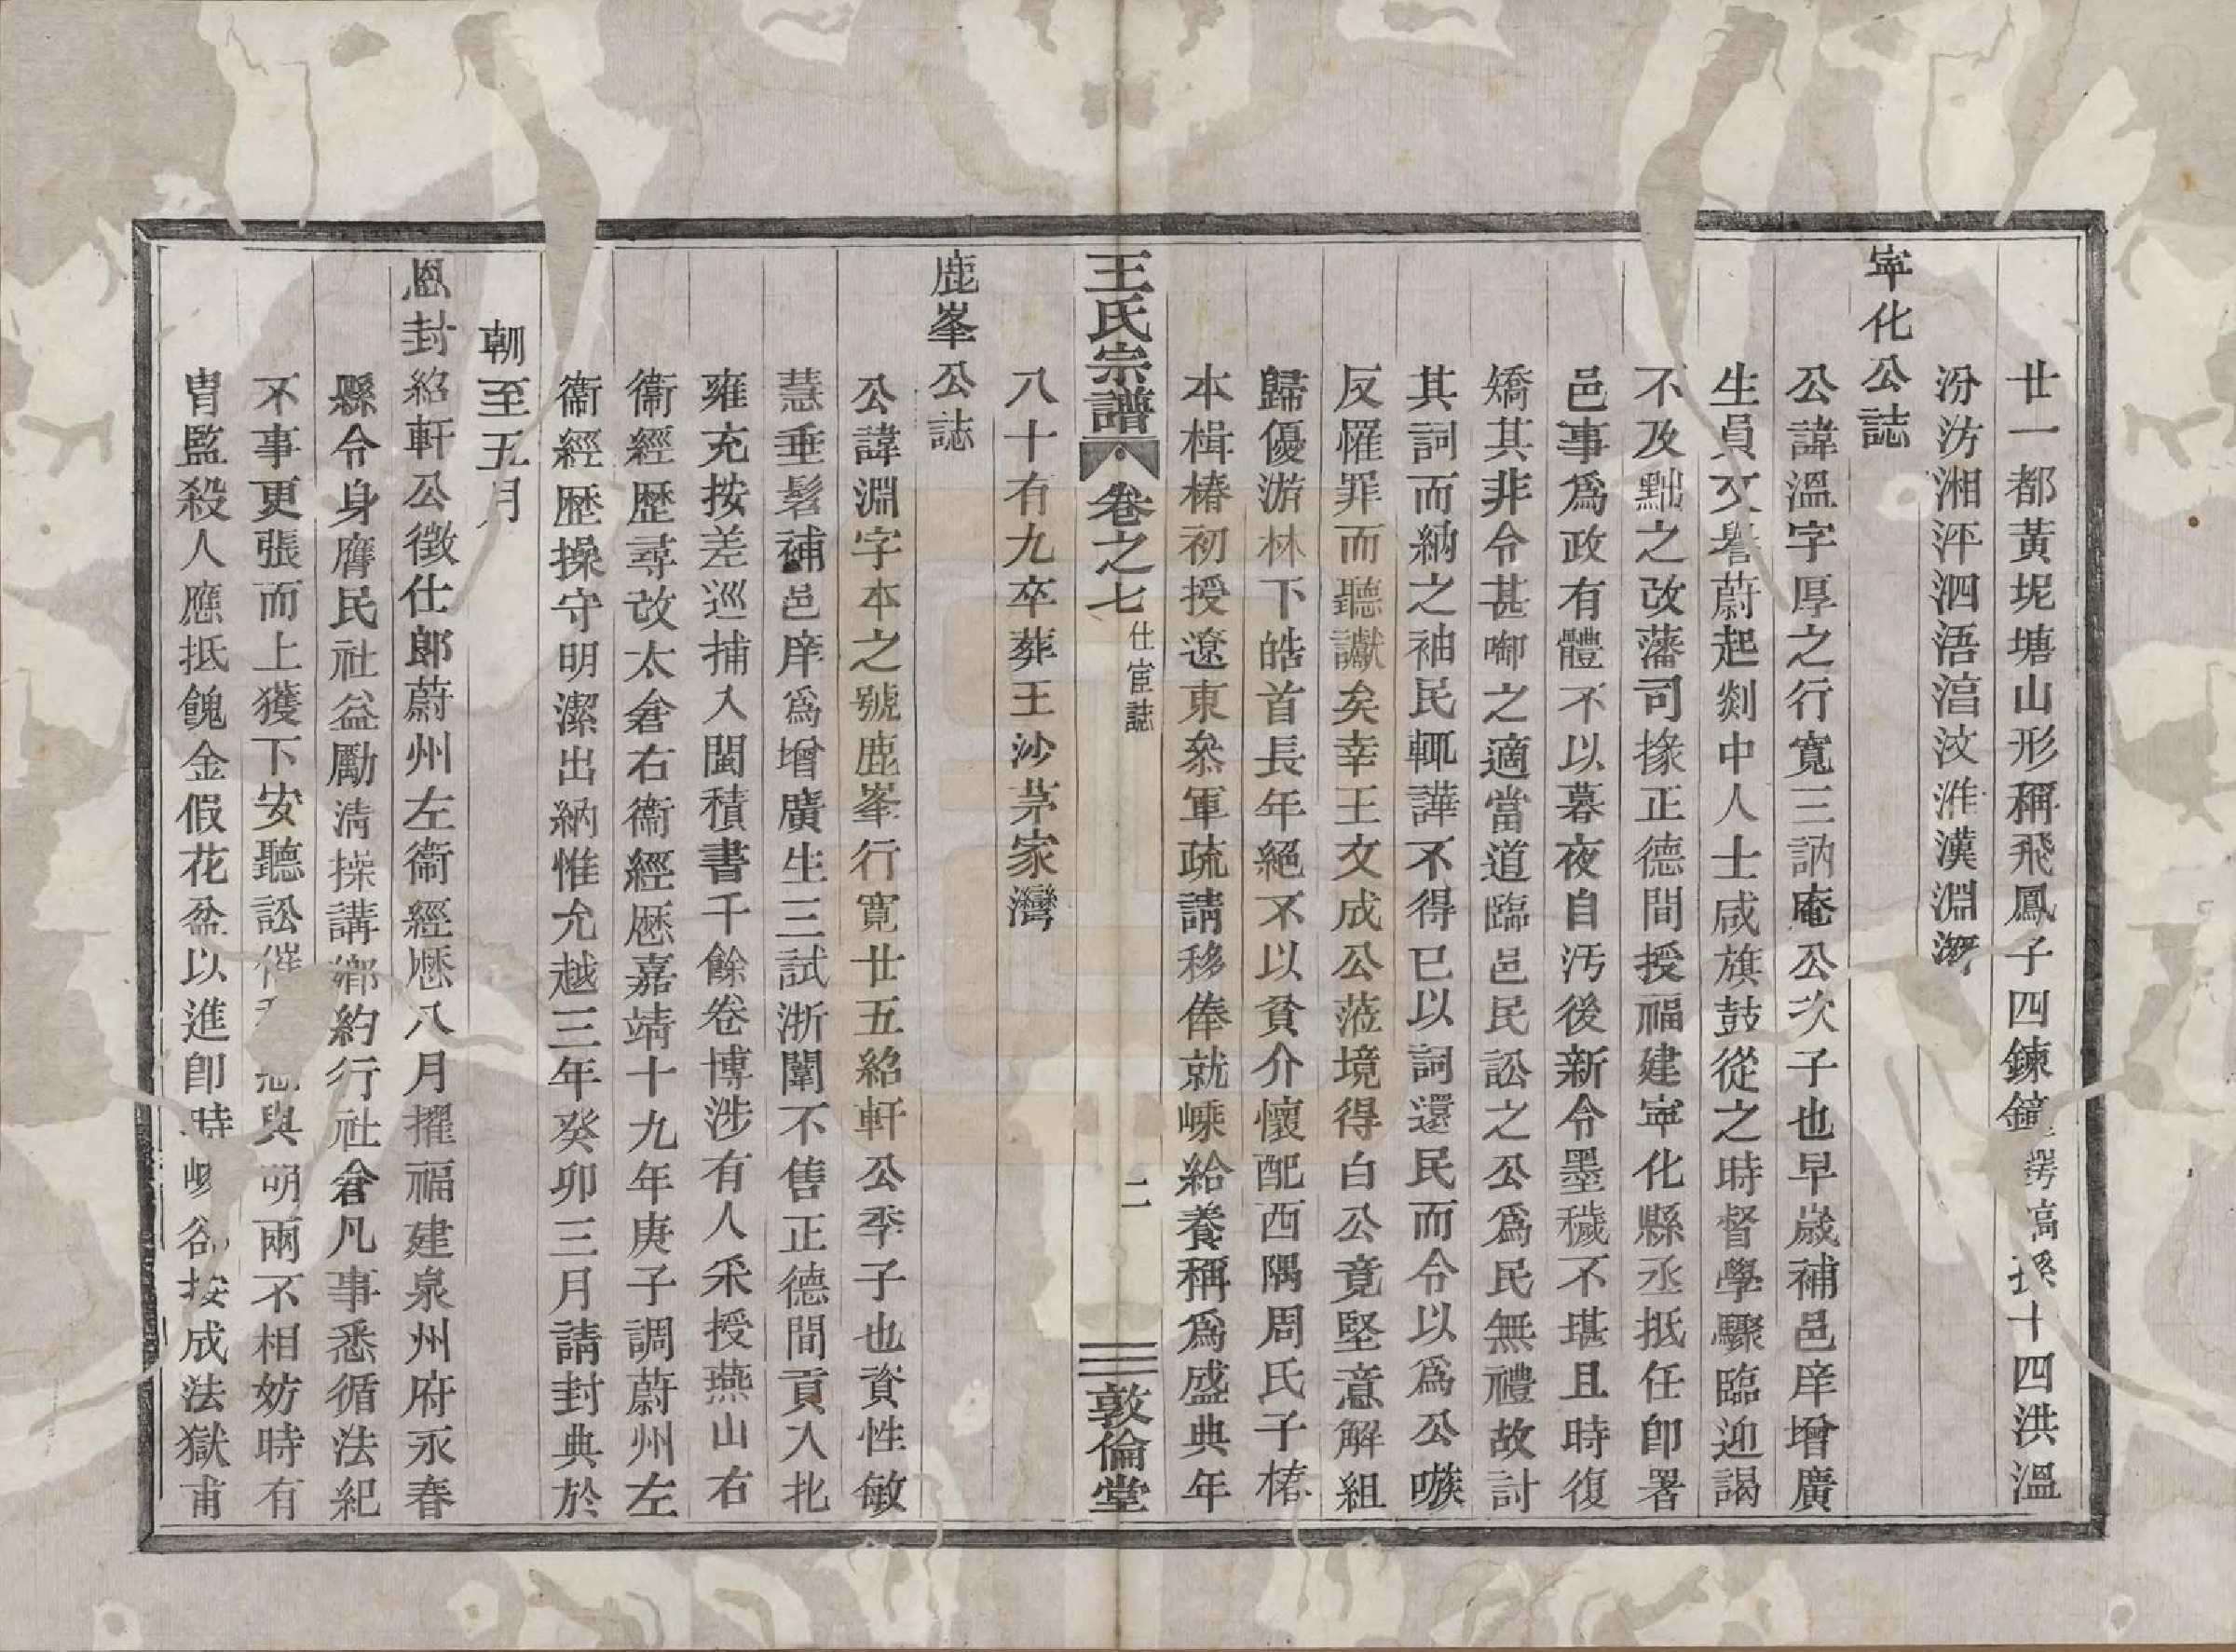 廿一都黃坭塘山形稱飛鳳子四鍊鐘孫十四洪溫
汾汸湘泙泗浯湆汶淮漢淵
寧化公誌
公諱溫字厚之行寬三訥庵公次子也早歲補邑庠增廣
生員文譽蔚起剡中人士咸旗鼓從之時督學驟臨迎謁
不及黜之改藩司掾正德間授福建寧化縣丞抵任卽署
邑事爲政有體不以暮夜自汚後新令墨穢不堪且時復
嬌其非令甚啣之適當道臨邑民訟之公爲民無禮故討
其詞而納之袖民輒譁不得已以詞還民而令以爲公嗾
反罹罪而聽讞矣幸王文成公蒞境得白公竟堅意解組
歸優游林下皓首長年絕不以貧介懷配西隅周氏子椿
本楫椿初授遼東叅軍疏請移俸就嵊給養稱爲盛典年
八十有九卒葬王沙茅家灣
王氏宗譜 卷之七 仕宦誌 二 敦倫堂
鹿峯公誌
公諱淵字本之號鹿峯行寬廿五紹軒公季子也資性敏
慧垂髫補邑庠爲增廣生三試浙闈不售正德間貢入北
雍充按差巡捕入閩積書千餘卷博涉有人采授燕山右
衞經歷尋改太倉右衞經歷嘉靖十九年庚子調蔚州左
衞經歷操守明潔出納惟允越三年癸卯三月請封典於
朝至五月
恩封紹軒公徵仕郎蔚州左衞經歷八月擢福建泉州府永春
縣令身膺民社益勵淸操講鄉約行社倉凡事悉循法紀
不事更張而上獲下安聽訟催與明兩不相妨時有
胄監殺人應抵餽金假花盆以進卽時按成法獄甫